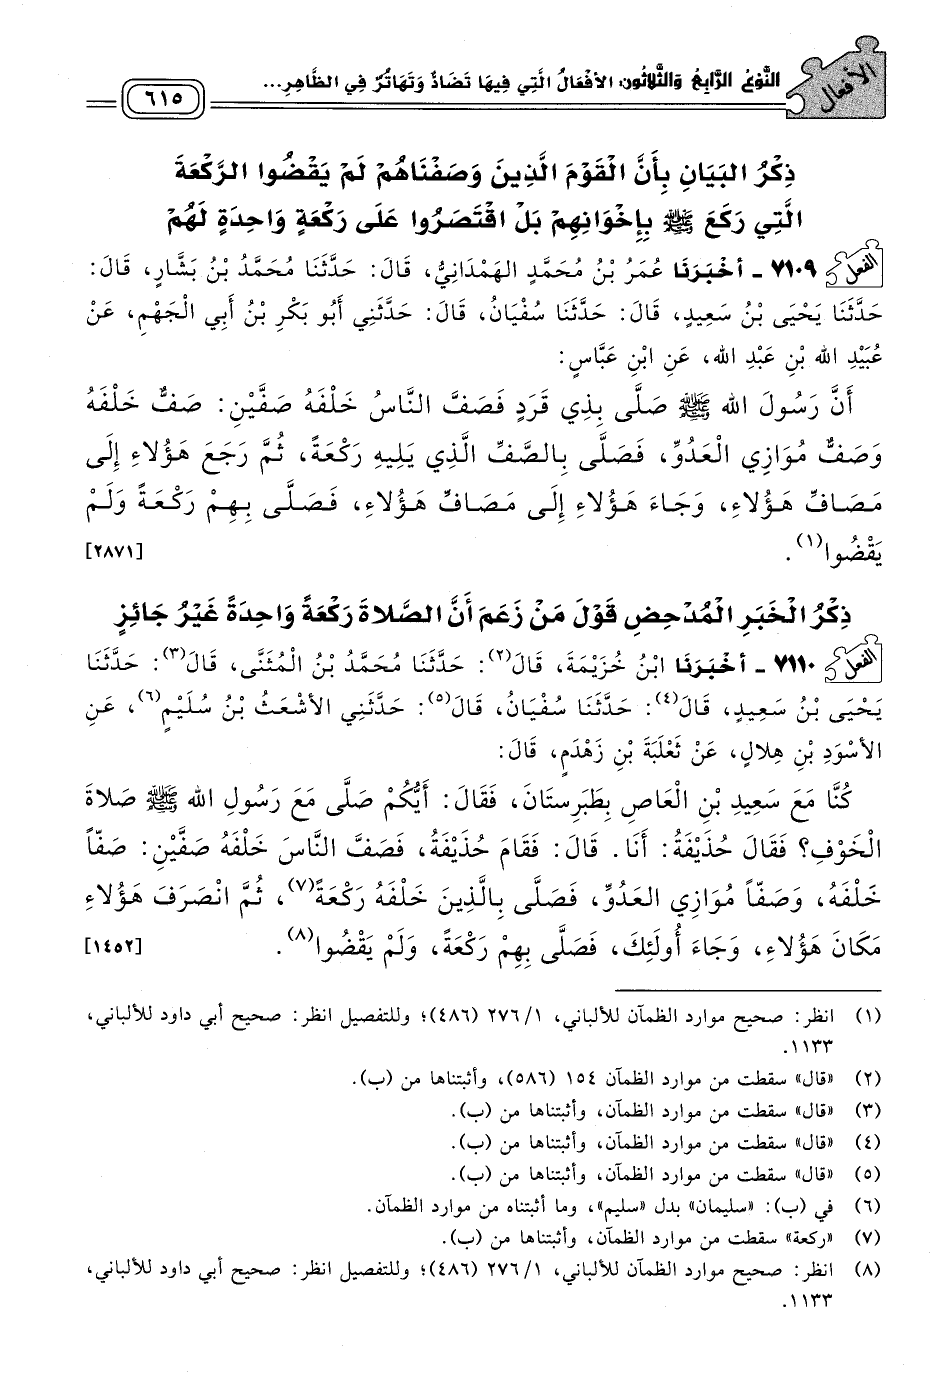 الأفعال
النَّوْعُ الرَّابِعُ وَالثَّلَاثُون: الأَفْعَالُ الَّتِي فِيهَا تَضَادٌّ وَتَهَاتُرٌ فِي الظَّاهِرِ...
٦١٥
ذِكْرُ البَيَانِ بِأَنَّ الْقَوْمَ الَّذِينَ وَصَفْنَاهُمْ لَمْ يَقْضُوا الرَّكْعَةَ
الَّتِي رَكَعَ ﷺ بِإِخْوَانِهِمْ بَلْ اقْتَصَرُوا عَلَى رَكْعَةٍ وَاحِدَةٍ لَهُمْ
الفعل ٧١٠٩ - أَخْبَرَنَا عُمَرُ بْنُ مُحَمَّدٍ الهَمْدَانِيُّ، قَالَ: حَدَّثَنَا مُحَمَّدُ بْنُ بَشَّارٍ، قَالَ:
حَدَّثَنَا يَحْيَى بْنُ سَعِيدٍ، قَالَ: حَدَّثَنَا سُفْيَانُ، قَالَ: حَدَّثَنِي أَبُو بَكْرِ بْنُ أَبِي الْجَهْمِ، عَنْ
عُبَيْدِ الله بْنِ عَبْدِ الله، عَنِ ابْنِ عَبَّاسٍ:
أَنَّ رَسُولَ الله ﷺ صَلَّى بِذِي قَرَدٍ فَصَفَّ النَّاسُ خَلْفَهُ صَفَّيْنِ: صَفٌّ خَلْفَهُ
وَصَفٌّ مُوَازِي الْعَدُوِّ، فَصَلَّى بِالصَّفِّ الَّذِي يَلِيهِ رَكْعَةً، ثُمَّ رَجَعَ هَؤُلَاءِ إِلَى
مَصَافِّ هَؤُلَاءِ، وَجَاءَ هَؤُلَاءِ إِلَى مَصَافِّ هَؤُلَاءِ، فَصَلَّى بِهِمْ رَكْعَةً وَلَمْ
يَقْضُوا(١). [٢٨٧١]
ذِكْرُ الْخَبَرِ الْمُدْحِضِ قَوْلَ مَنْ زَعَمَ أَنَّ الصَّلَاةَ رَكْعَةً وَاحِدَةً غَيْرُ جَائِزٍ
الفعل ٧١١٠ - أَخْبَرَنَا ابْنُ خُزَيْمَةَ، قَالَ(٢): حَدَّثَنَا مُحَمَّدُ بْنُ الْمُثَنَّى، قَالَ(٣): حَدَّثَنَا
يَحْيَى بْنُ سَعِيدٍ، قَالَ(٤): حَدَّثَنَا سُفْيَانُ، قَالَ(٥): حَدَّثَنِي الأَشْعَثُ بْنُ سُلَيْمٍ(٦)، عَنِ
الأَسْوَدِ بْنِ هِلَالٍ، عَنْ ثَعْلَبَةَ بْنِ زَهْدَمٍ، قَالَ:
كُنَّا مَعَ سَعِيدِ بْنِ الْعَاصِ بِطَبَرِسْتَانَ، فَقَالَ: أَيُّكُمْ صَلَّى مَعَ رَسُولِ الله ﷺ صَلَاةَ
الْخَوْفِ؟ فَقَالَ حُذَيْفَةُ: أَنَا. قَالَ: فَقَامَ حُذَيْفَةُ، فَصَفَّ النَّاسَ خَلْفَهُ صَفَّيْنِ: صَفّاً
خَلْفَهُ، وَصَفّاً مُوَازِي العَدُوِّ، فَصَلَّى بِالَّذِينَ خَلْفَهُ رَكْعَةً(٧)، ثُمَّ انْصَرَفَ هَؤُلَاءِ
مَكَانَ هَؤُلَاءِ، وَجَاءَ أُولَئِكَ، فَصَلَّى بِهِمْ رَكْعَةً، وَلَمْ يَقْضُوا(٨). [١٤٥٢]
(١) انظر: صحيح موارد الظمآن للألباني، ١/ ٢٧٦ (٤٨٦)؛ وللتفصيل انظر: صحيح أبي داود للألباني،
١١٣٣.
(٢) «قال» سقطت من موارد الظمآن ١٥٤ (٥٨٦)، وأثبتناها من (ب).
(٣) «قال» سقطت من موارد الظمآن، وأثبتناها من (ب).
(٤) «قال» سقطت من موارد الظمآن، وأثبتناها من (ب).
(٥) «قال» سقطت من موارد الظمآن، وأثبتناها من (ب).
(٦) في (ب): «سليمان» بدل «سليم»، وما أثبتناه من موارد الظمآن.
(٧) «ركعة» سقطت من موارد الظمآن، وأثبتناها من (ب).
(٨) انظر: صحيح موارد الظمآن للألباني، ١/ ٢٧٦ (٤٨٦)؛ وللتفصيل انظر: صحيح أبي داود للألباني،
١١٣٣.